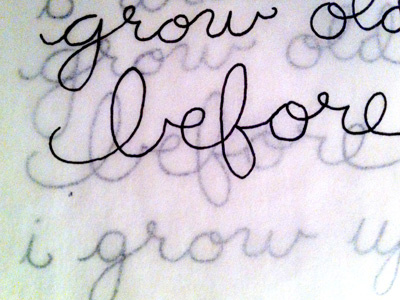 grow old
before
i grow up